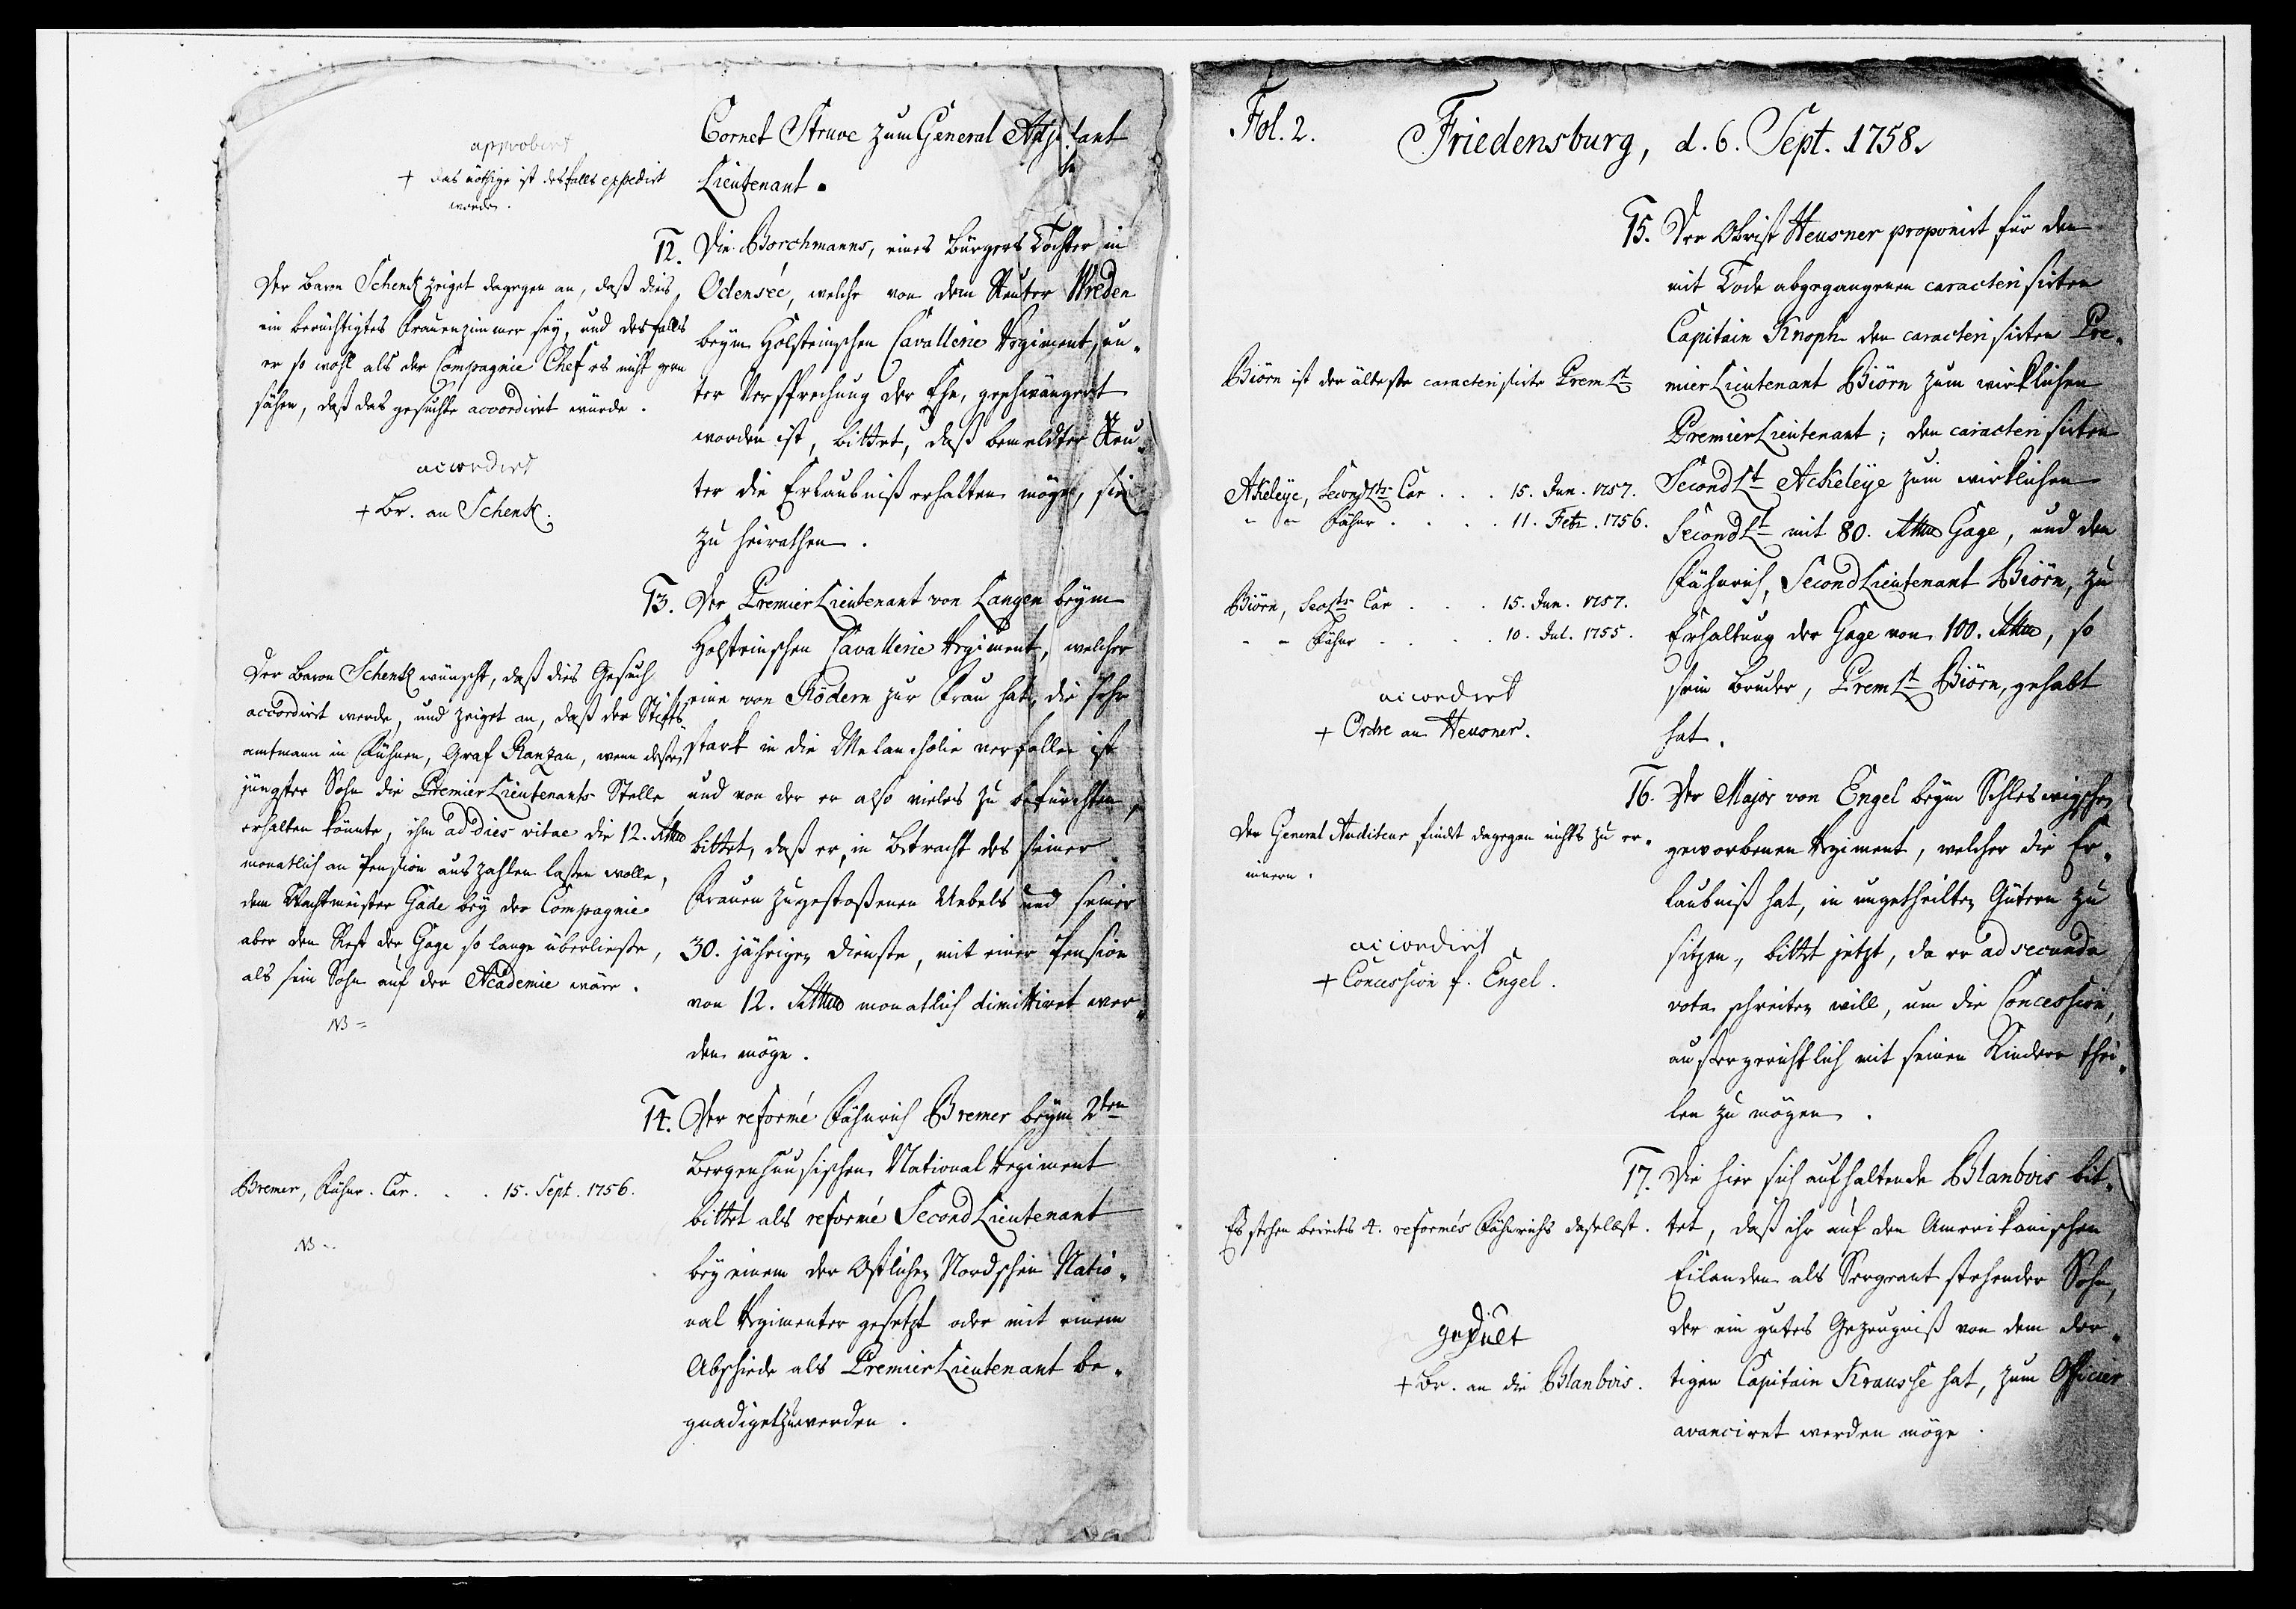 Cornet Struve zum General Adjutant
Lieutenant.
approbirt
+ das nöthige ist desfalls expedirt
worden.
12. Die Borchmanns, eines Bürgers Tochter in
Odensée, welche von dem Reuter Wreden
beym Holsteinschen Cavallerie Regiment, un-
ter Versprechung der Ehe, geschwängert
worden ist, bittet, daß bemeldter Reu-
ter die Erlaubniß erhalten möge, sie
zu heirathen.
Der Baron Schenk zeiget dagegen an, daß dies
ein berüchtigtes Frauenzimmer sey, und desfalls
er so wohl als der Compagnie Chef es nicht gern
sähen, daß das gesuchte accordiret würde.
accordirt
+ Br. an Schenk.
13. Der Premier Lieutenant von Langen beym
Holsteinschen Cavallerie Regiment, welcher
eine von Rödern zur Frau hat, die sehr
stark in die Melancholie verfallen ist
und von der er also vieles zu befürchten,
bittet, daß er, in Betracht des seiner
Frauen zugestoßenen Uebels und seiner
30. jährigen Dienste, mit einer Pension
von 12. Rthlr monatlich dimittiret wer-
den möge.
Der Baron Schenk wünscht, daß dies Gesuch
accordirt werde, und zeiget an, daß der Stifts
amtmann in Fühnen, Graf Ranzau, wenn dessen
jüngster Sohn die Premier Lieutenants Stelle
erhalten könnte, ihm ad dies vitae die 12. Rthlr
monatlich an Pension auszahlen lassen wolle,
dem Wachtmeister Gade bey der Compagnie
aber den Rest der Gage so lange überliesse,
als sein Sohn auf der Academie wäre.
NB =
14. Der reformé Fähnrich Bremer beym 2ten
Bergenhuusischen National Regiment
bittet als reformé Second Lieutenant
bey einem der Ostlichen Nordschen Natio-
nal Regimenter gesetzt oder mit einem
Abschiede als Premier Lieutenant be-
gnadiget zu werden.
Bremer, Fähnr. Car. . . 15. Sept. 1756.
NB -
Fol. 2. Friedensburg, d. 6. Sept. 1758.
15. Der Obrist Heusner proponirt für den
mit Tode abgegangenen caracterisirten
Capitain Knoph den caracterisirten Pre-
mier Lieutenant Biörn zum wirklichen
Premier Lieutenant; den caracterisirten
Second Lt Ackeleye zum wirklichen
Second Lt mit 80. Rthlr Gage, und den
Fähnrich, Second Lieutenant Biörn, zu
Erhaltung der Gage von 100. Rthlr, so
sein Bruder, Prem Lt Biörn, gehabt
hat.
Biörn ist der älteste caracterisirte Prem Lt
Akeleye, Second Lts Car . . . 15. Jun. 1757.
- - Fähnr . . . . 11. Febr. 1756.
Biörn, Sec Lts Car . . . 15. Jun. 1757.
- - Fähnr . . . . 10. Jul. 1755.
accordirt
+ Ordre an Heusner.
16. Der Major von Engel beym Schleswigschen
geworbenen Regiment, welcher die Er-
laubniß hat, in ungetheilten Gütern zu
sitzen, bittet jetzt, da er ad secunda
vota schreiten will, um die Concession,
aussergerichtlich mit seinen Kindern thei-
len zu mögen.
Der General Auditeur findet dagegen nichts zu er-
innern.
accordirt
+ Concession f. Engel.
17. Die hier sich aufhaltende Blanbois bit-
tet, daß ihr auf den Amerikanischen
Eilanden als Sergeant stehender Sohn,
der ein gutes Gezeugniß von dem dor-
tigen Capitain Krausse hat, zum Officier
avanciret werden möge.
Es stehen bereits 4. reformés Fähnrichs daselbst.
gedult
+ Br. an die Blanbois.